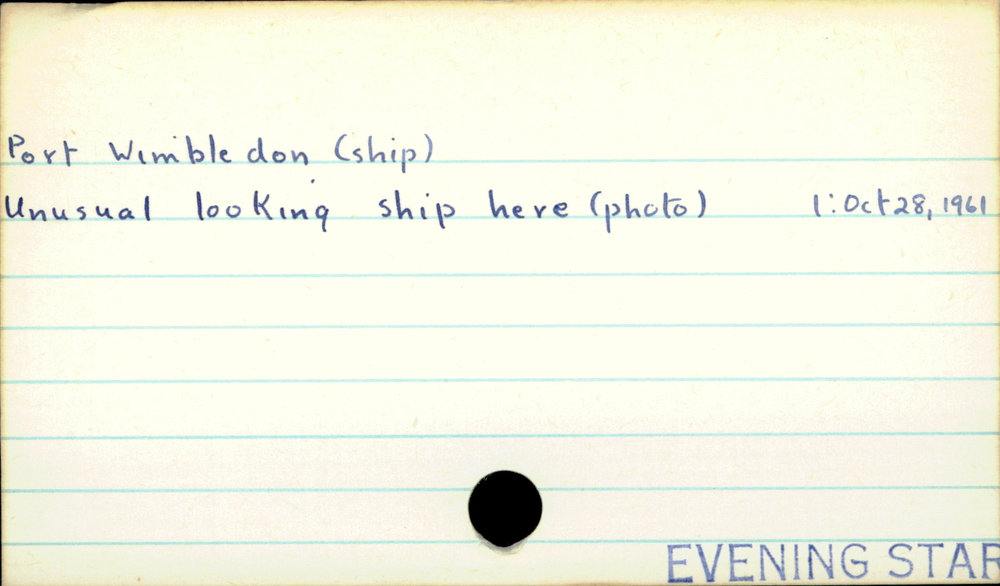 Port Wimbledon (ship)
Unusual looking ship here (photo) 1: Oct 28, 1961
EVENING STAR